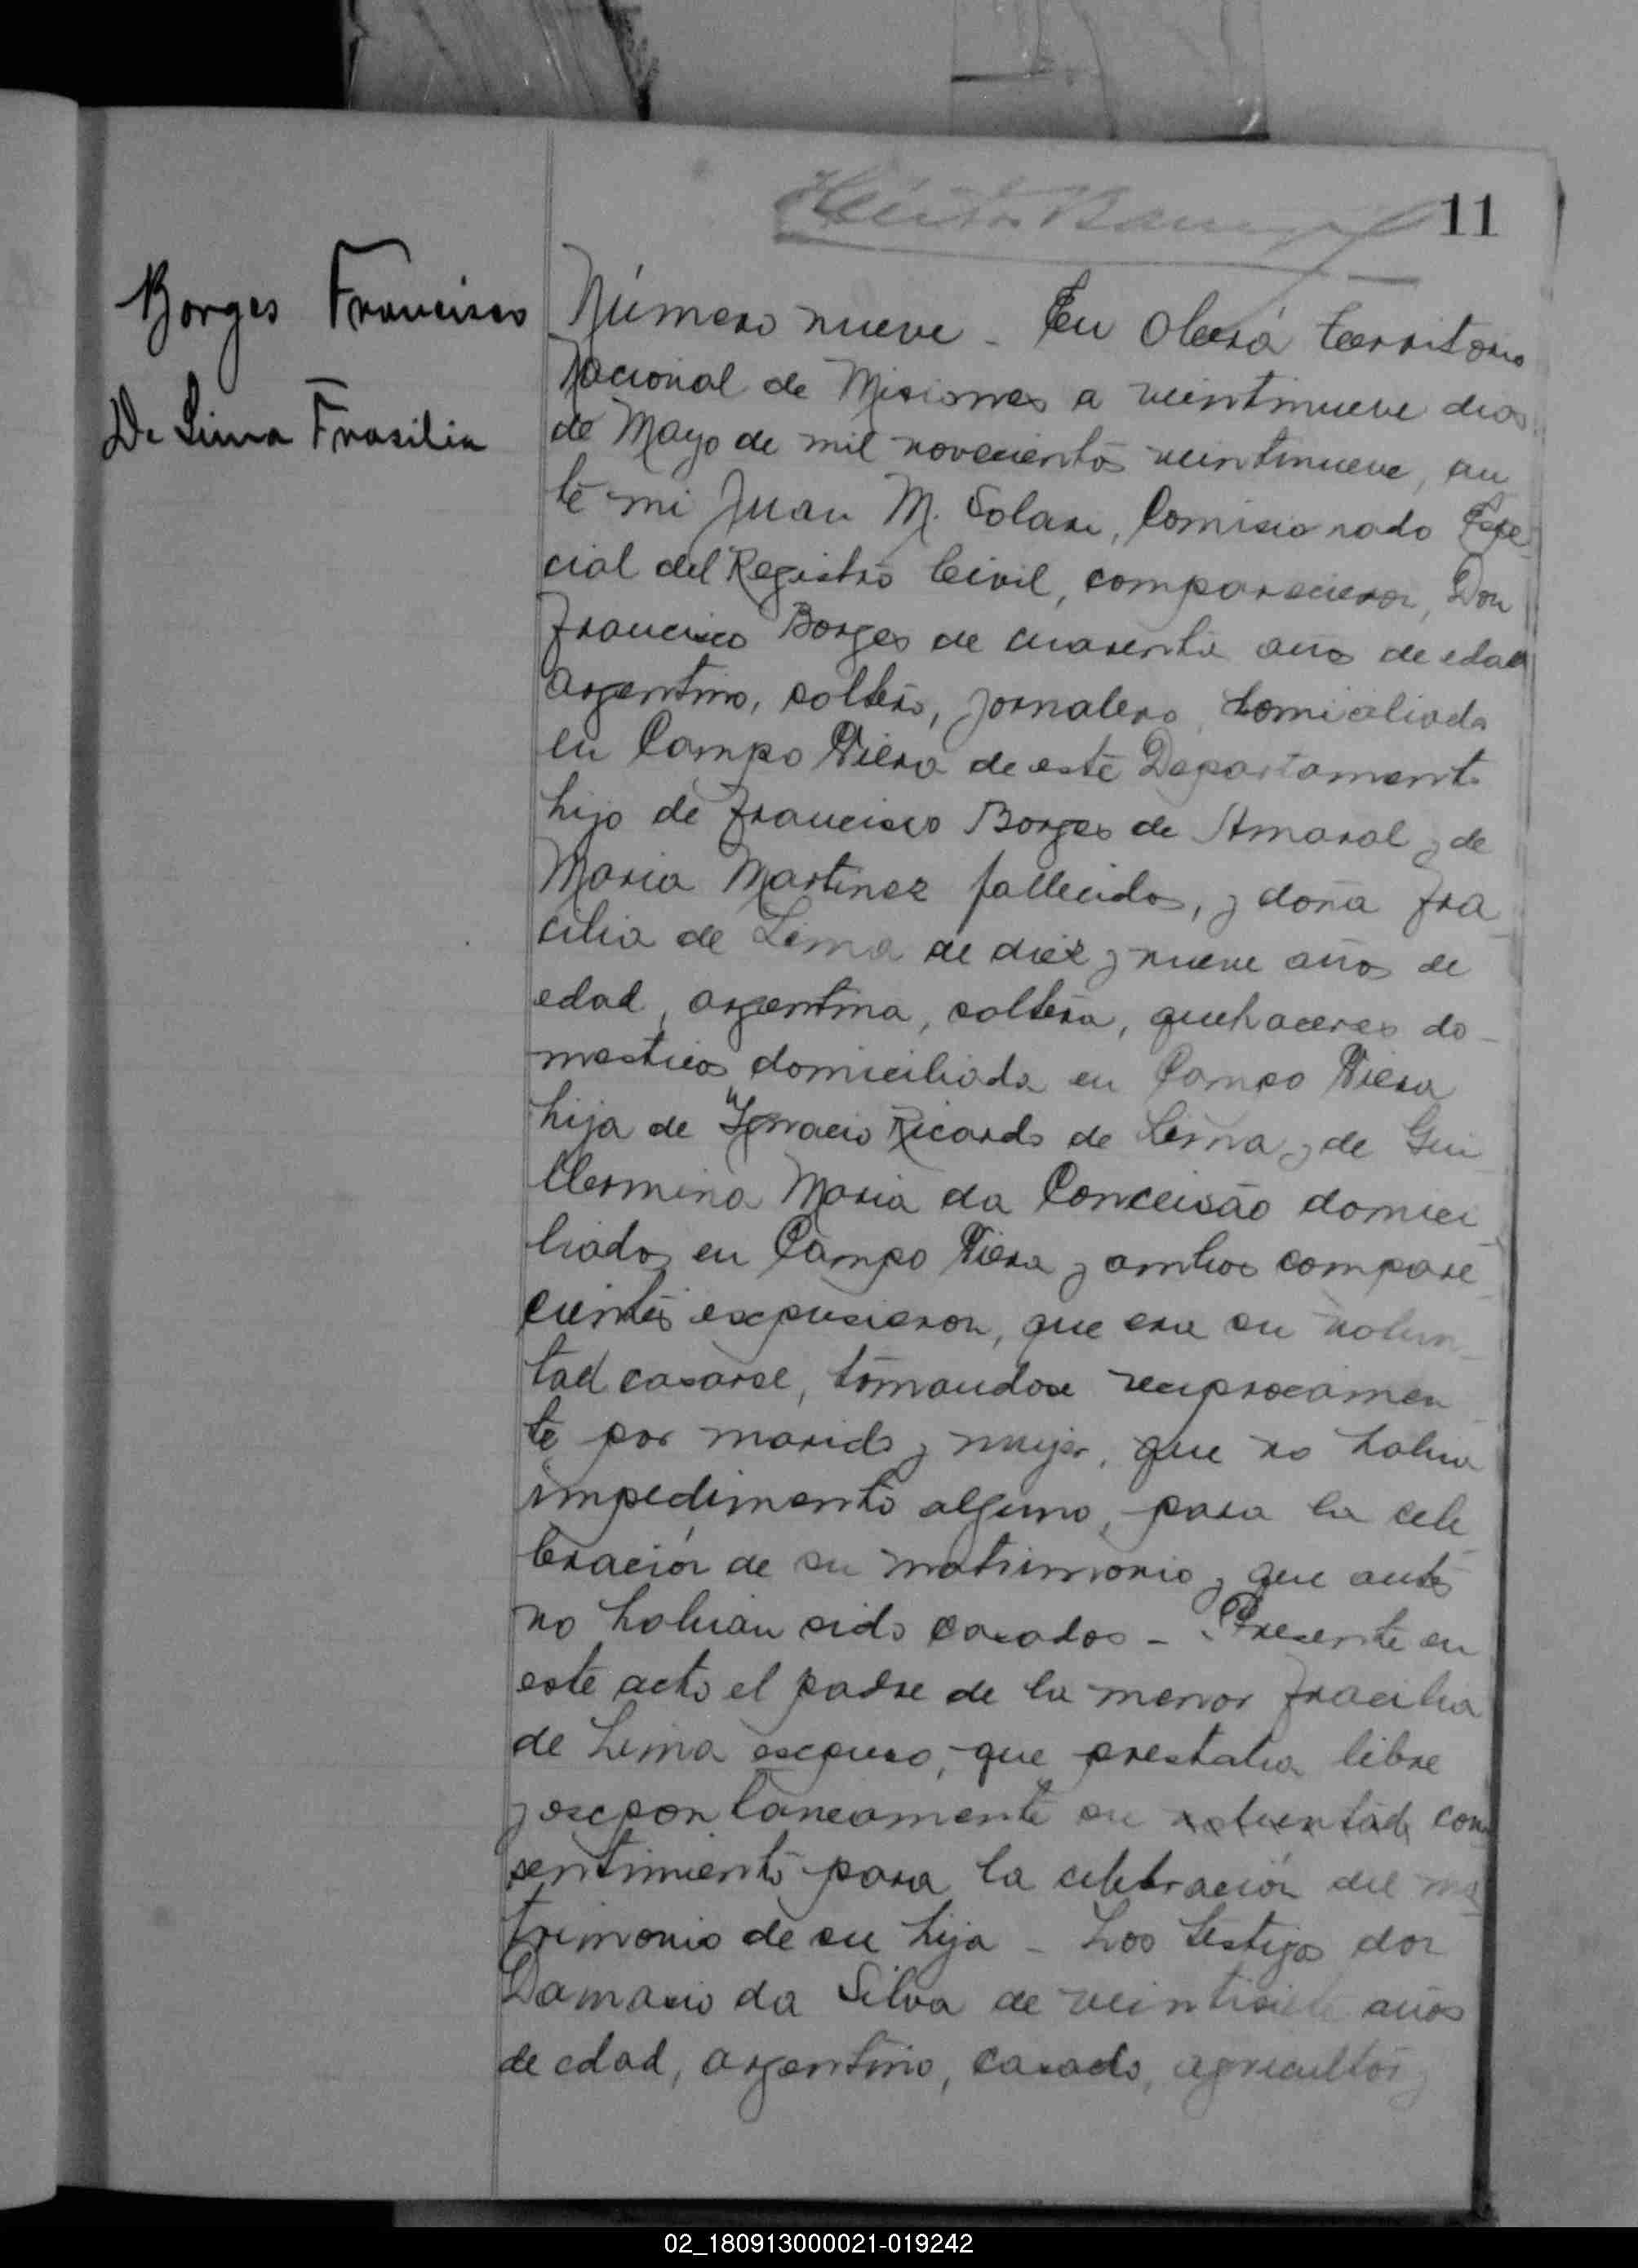 11
Borges Francisco
De Lima Frasilia
Número nueve - En Oberá territorio
Nacional de Misiones a veintinueve dias
de Mayo de mil novecientos veintinueve, an
te mi Juan M. Solari, Comisionado Espe
cial del Registro Civil, comparecieron, Don
Francisco Borges de cuarenta años de edad
argentino, soltero, jornalero, domiciliado
en Campo Viera de este Departamento
hijo de Francisco Borges de Amaral y de
Maria Martinez fallecidos, y doña Fra
cilia de Lima de diez y nueve años de
edad, argentina, soltera, quehaceres do-
mesticos domiciliada en Campo Viera
hija de Ignacio Ricardo de Lima y de Gui
llermina Maria da Conceisão domici
liados en Campo Viera y ambos compare
cientes expusieron, que era su volun
tad casarse, tomandose reciprocamen
te por marido y mujer, que no habia
impedimento alguno, para la cele
bración de su matrimonio y que antes
no habian sido casados - Presente en
este acto el padre de la menor Fracilia
de Lima expuso, que prestaba libre
y expontaneamente su voluntad, con
sentimiento para la celebración del ma
trimonio de su hija - Los testigos don
Damasio da Silva de veintisiete años
de edad, argentino, casado, agricultor y
02_180913000021-019242